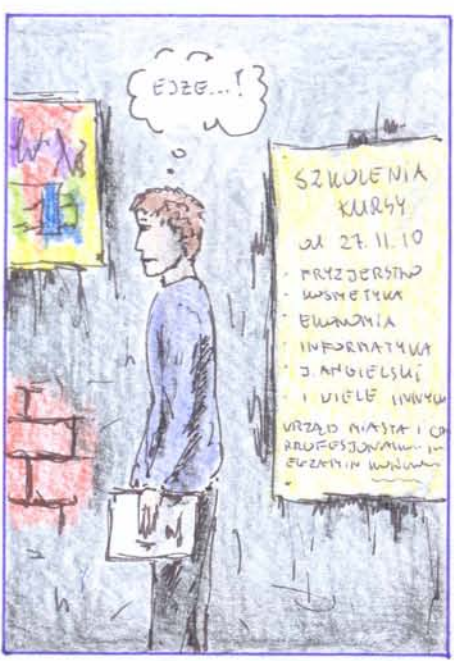 EJZE...!
SZKOLENIA
KURSY
od 27.11.10
- FRYZJERSTWO
- KOSMETYKA
- EKONOMIA
- INFORMATYKA
- J. ANGIELSKI
- I WIELE INNYCH
URZĄD MIASTA I
EGZAMIN